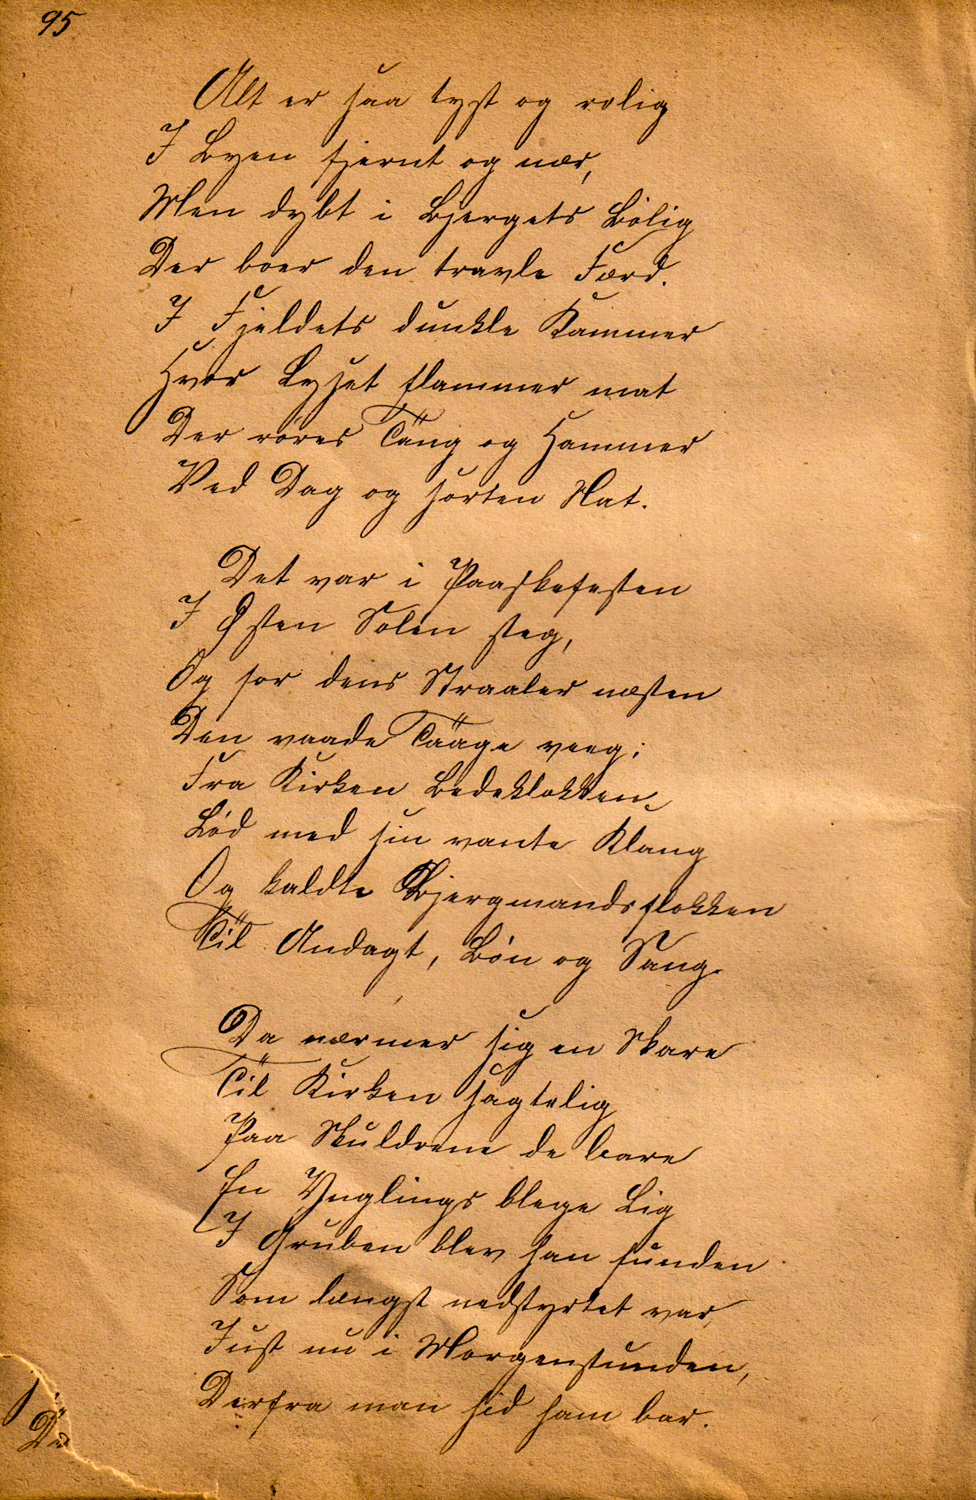 95
Alt er saa tyst og rolig
I Byen fjernt og nær,
Men dybt i Bjergets Bolig
Der boer den travle Færd.
I Fjeldets dunkle Kammer
Hvor Lyset flammer mat
Der röres Täng og Hammer
Ved Dag og sorten Nat.
Det var i Paaskefesten
I Østen Solen steg,
Og for dens Straaler næsten
Den vaade Tääge veeg;
Fra Kirken Bedeklokken
Lød med sin vante Klang
Og kaldte Bjergmandsflokken
Til Andagt, Bön og Sang.
Da nærmer sig en Skare
Til Kirken sagtelig
Paa Skuldrene de bare
En Ynglings blege Lig
I Gruben blev han funden
Som længst nedstyrtet var,
Just nu i Morgenstunden,
Derfra man hid ham bar.